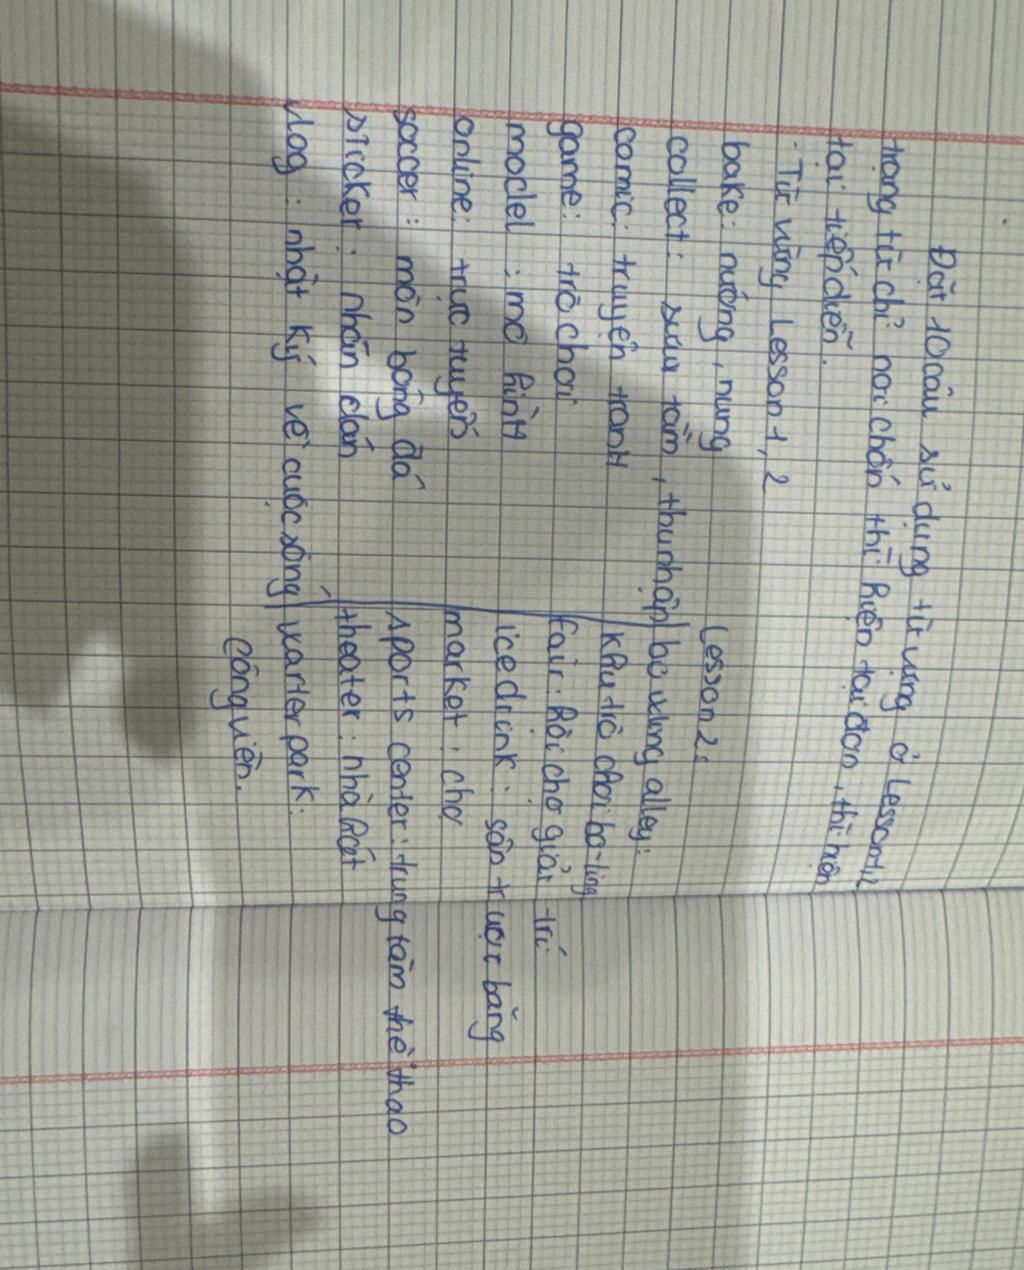 Đặt 10 câu sử dụng từ vựng ở Lesson 1,2
trạng từ chỉ nơi chốn thì hiện tại đơn, thì hiện
tại tiếp diễn.
. Từ vững Lesson 1, 2
bake: nướng, nung
collect: sưu tầm, thu nhập
comic: truyện tranh
game: trò chơi
model: mô hình
online: trực tuyến
soccer: môn bóng đá
sticker: nhãn dán
vlog: nhật ký về cuộc sống
Lesson 2:
bowling alley:
khu trò chơi bo-ling
fair: hội chợ giải trí
ice drink: sân trượt băng
market: chợ
sports center: trung tâm thể thao
theater: nhà hát
warter park:
công viên.